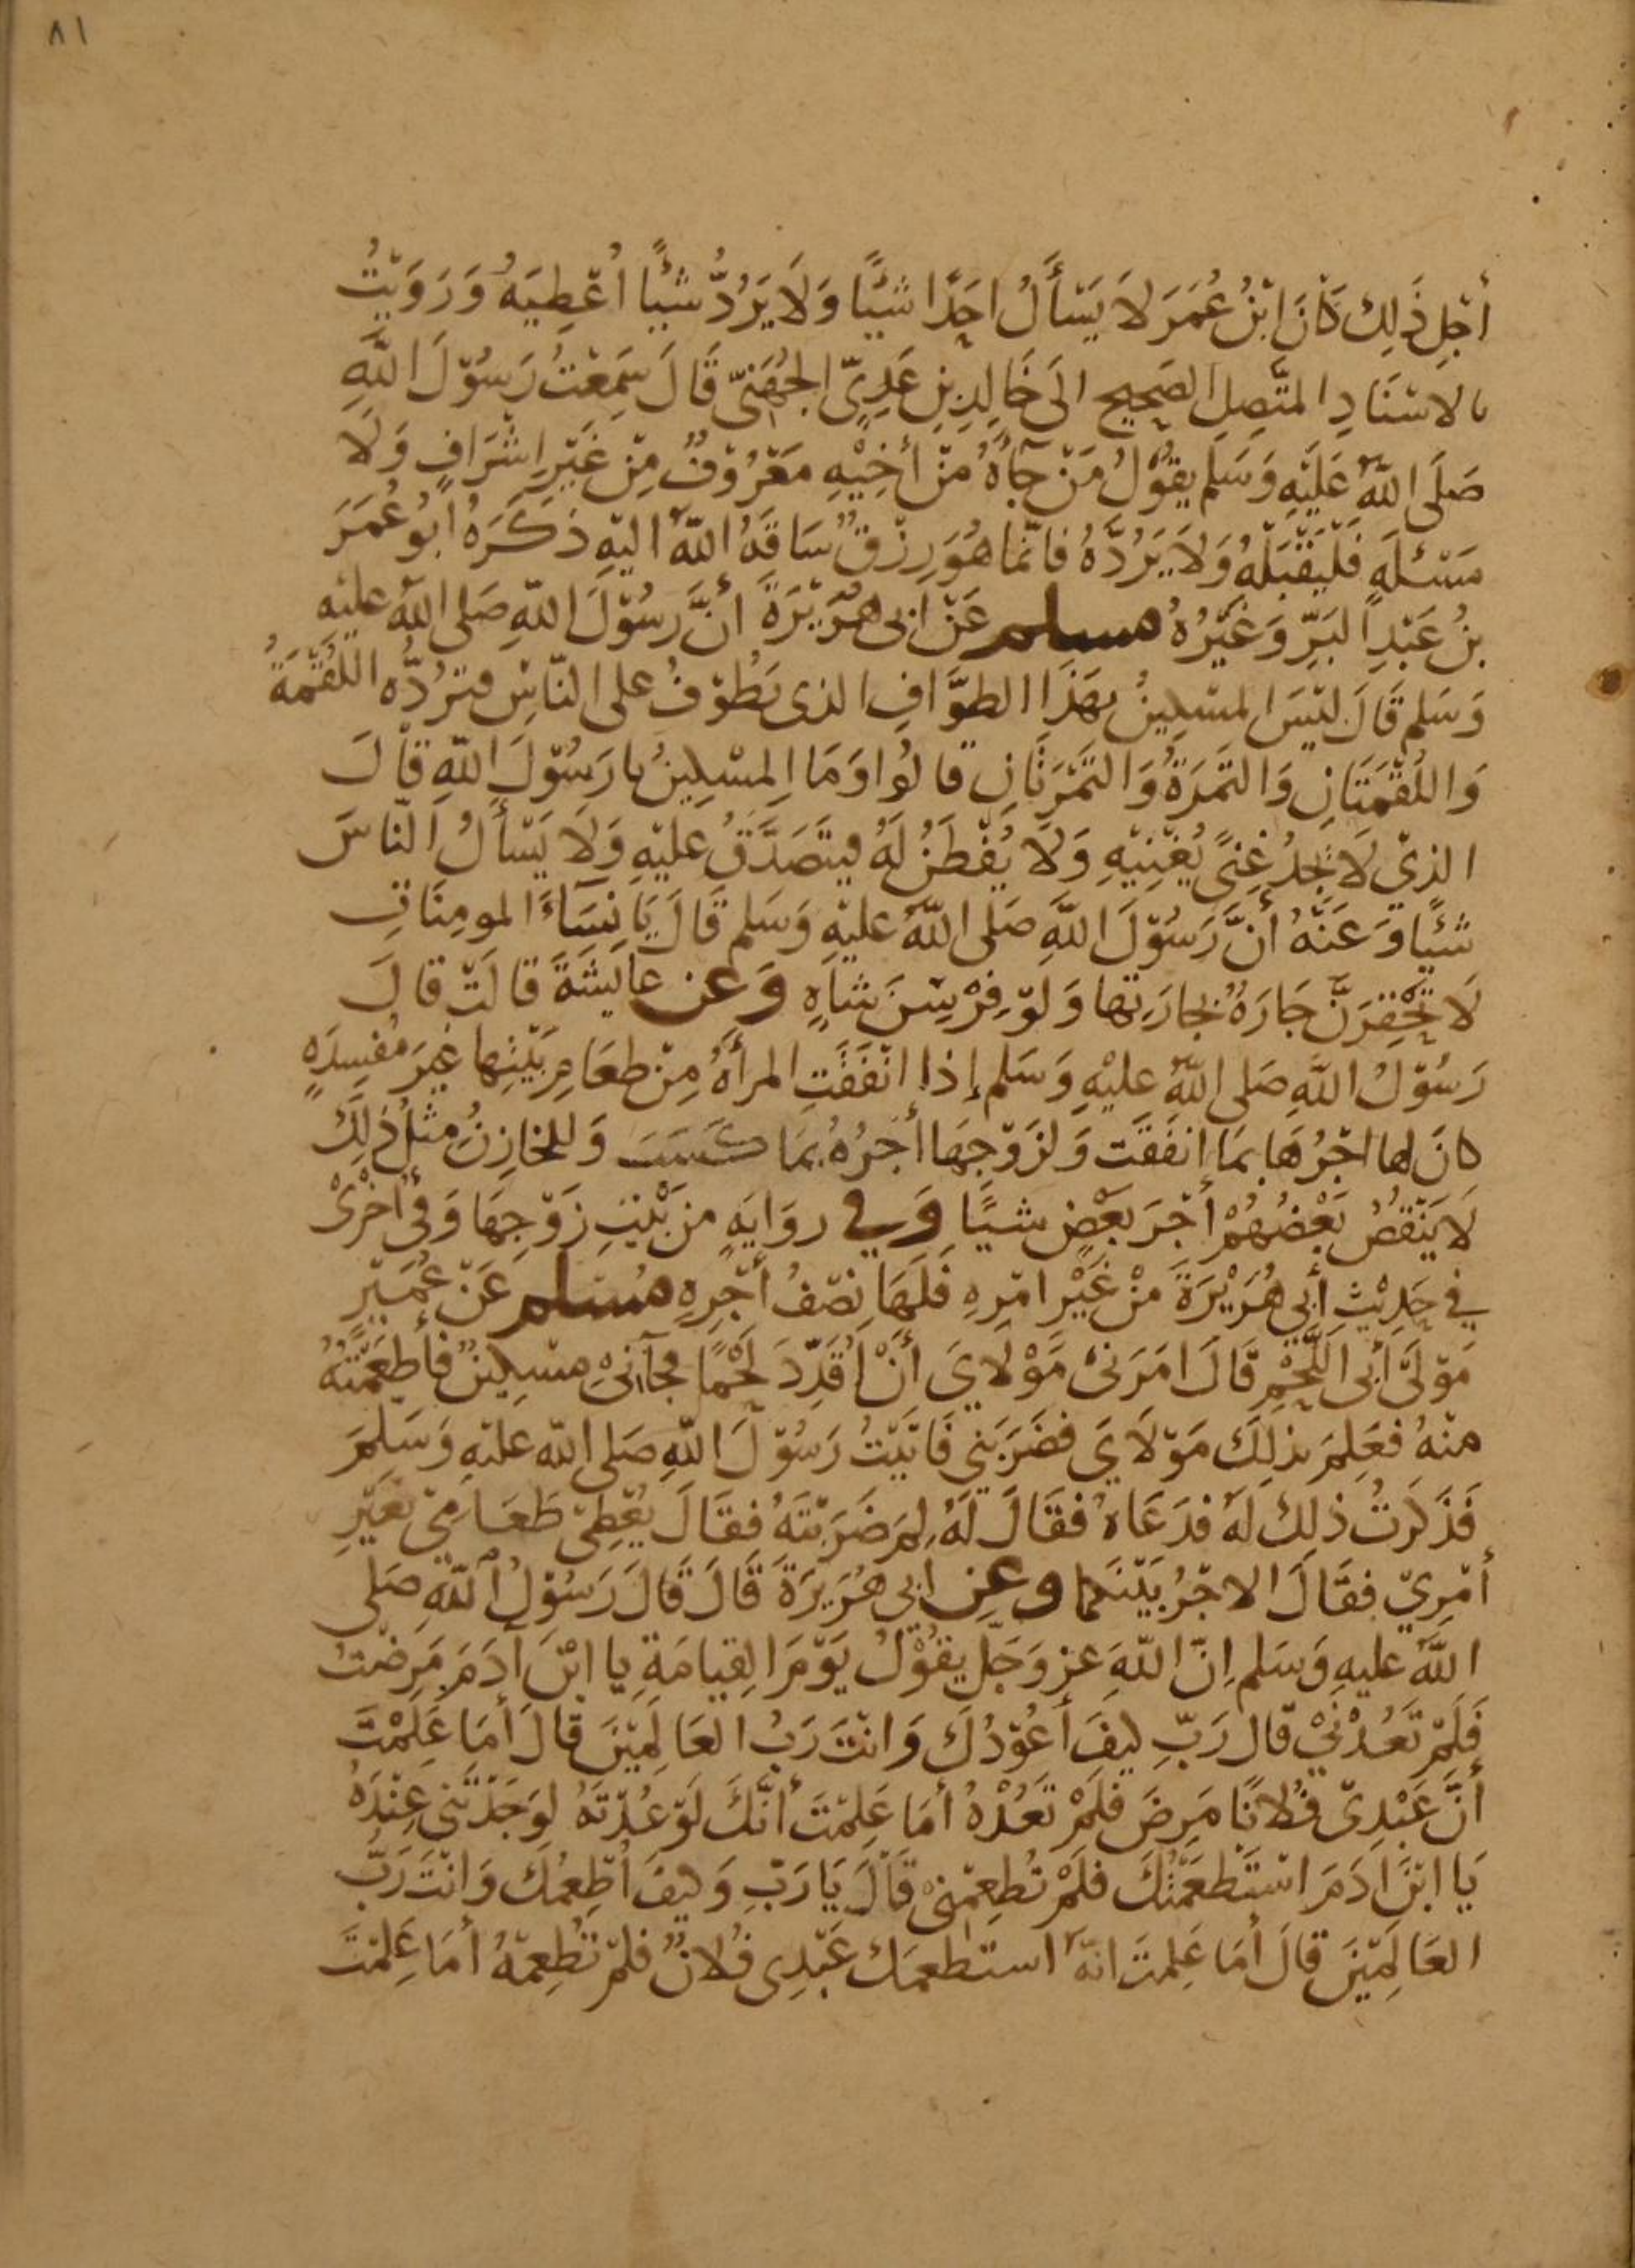 ٨١
أجْلِ ذَلِكَ كَانَ ابْنُ عُمَرَ لاَ يَسْأَلُ احَدًا شَيْئًا وَلَا يَرُدُّ شَيْئًا اُعْطِيَهُ وَرَوَيْتُ
بالاسْنَادِ المتَّصِلِ الصَحِيحِ الَى خَالِدِ بنِ عَدِىِّ الجُهَنىّ قَالَ سَمِعْتُ رَسُوْلَ اللَّهِ
صَلَى اللَّهُ عَلَيْهِ وَسَلم يقوْلُ مَنْ جَآءَهُ مِنْ أخِيْهِ مَعْرُوْفٌ مِنْ غَيْرِ اشْرَافٍ وَلَا
مَسْئلَةٍ فَلْيَقْبَلْهُ وَلاَ يَرُدَّهُ فانّما هُوَ رِزْقٌ سَاقَهُ اللَّهُ اليْهِ ذكَرَهُ ابُو عُمَرَ
بنُ عَبْدِ البَرِّ وَغَيْرُهُ مسلم عَنْ ابى هُرَيْرَةَ أنَّ رسُوْلَ اللهِ صَلى اللهُ عليْهِ
وَسَلم قَالَ ليْسَ المسْكِينُ بهَذَا الطوَّافِ الذى يَطُوْفُ على النّاسِ فترُدُّه اللُقْمَةُ
وَاللُقْمَتَانِ وَالتَمْرَةُ وَالتَمْرَتَانِ قالُوا وَمَا المسْكِينُ يا رَسُوْلَ اللهِ قالَ
الذيْ لَا يَجِدُ غِنًى يُغْنِيْهِ وَلَا يُفْطَنُ لَهُ فيتَصَدَّقُ عَليْهِ وَلَا يَسْأَلُ النّاسَ
شَيْئًا وَعَنْهُ أنَّ رَسُوْلَ اللَّهِ صَلى اللّهُ عليْهِ وَسَلم قَالَ يَا نِسَاءَ المومِنَاتِ
لَا تَحْقِرَنَّ جَارَةٌ لجارَتِها وَلوْ فِرْسِنَ شاةٍ وَعن عايشَةَ قالَتْ قالَ
رَسُوْلُ اللَّهِ صَلى اللّهُ عليْهِ وَسَلم إذا انْفَقَتِ المرأةُ مِنْ طعَامِ بَيْتِها غيرَ مُفسِدَةٍ
كانَ لها اجْرُهَا بمَا انفَقَت وَلزَوْجِهَا أجْرُهُ بمَا كسَبَ وَللخازِنِ مثْلُ ذَلِكَ
لَا يَنْقصُ بَعْضُهُمْ أجْرَ بَعْضٍ شيًا وَفي روَايَةٍ من بَيْتِ زَوْجِهَا وَفي أخْرَى
في حَدِيْثِ أبِي هُرَيْرَةَ مِنْ غَيْرِ امْرِهِ فَلَهَا نِصْفُ أجْرِهِ مُسْلم عَنْ عُمَيْرٍ
مَوْلَى أبى اللَّحْمِ قَالَ امَرَنىْ مَوْلَايَ أنْ اُقَدِّدَ لحْمًا فجآنىْ مسْكِينٌ فأطعَمْتُهُ
منْهُ فعَلِمَ بذلِكَ مَوْلَايَ فضَرَبَنِي فَاتَيْتُ رَسُوْلَ اللهِ صَلى اللهُ عليْهِ وَسَلمَ
فَذَكَرْتُ ذلِكَ لَهُ فدَعَاهُ فقَالَ لَهُ لِمَ ضَرَبْتَهُ فقَالَ يُعْطِىْ طَعَامِى بغَيْرِ
أمْرِيْ فقَالَ الاجْرُ بَيْنَكما وعن ابِي هُرَيرَةَ قَالَ قَالَ رَسُوْلُ اللهِ صَلى
اللَّهُ عليهِ وَسَلم اِنَّ اللهَ عز وَجَلَّ يقُوْلُ يَوْمَ القِيامَةِ يا ابْنَ آدَمَ مَرِضْتُ
فَلَمْ تَعُدْنِيْ قال رَبِّ كيفَ أعُوْدُكَ وَانْتَ رَبُّ العَالَمِيْنَ قالَ أمَا عَلِمْتَ
أنَّ عَبْدِىْ فُلانًا مَرِضَ فلَمْ تَعُدْهُ أمَا عَلِمْتَ أنَّكَ لَوْ عُدْتَهُ لوَجَدْتَنِى عِنْدَهُ
يَا ابْنَ اَدَمَ اسْتَطعَمْتُكَ فلَمْ تُطعِمْنِىْ قَالَ يَا رَبِّ وَكيْفَ اُطْعِمُكَ وَانْتَ رَبُّ
العَالَمِيْنَ قالَ أمَا عَلِمتَ انّهُ استطعمَكَ عَبْدِى فُلانٌ فلمْ تُطْعِمْهُ أمَا عَلِمْتَ